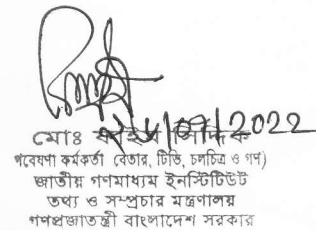 মোঃ
২৮/০৭/2022
গবেষণা কর্মকর্তা (বেতার, টিভি, চলচ্চিত্র ও গণ)
জাতীয় গণমাধ্যম ইনস্টিটিউট
তথ্য ও সম্প্রচার মন্ত্রণালয়
গণপ্রজাতন্ত্রী বাংলাদেশ সরকার